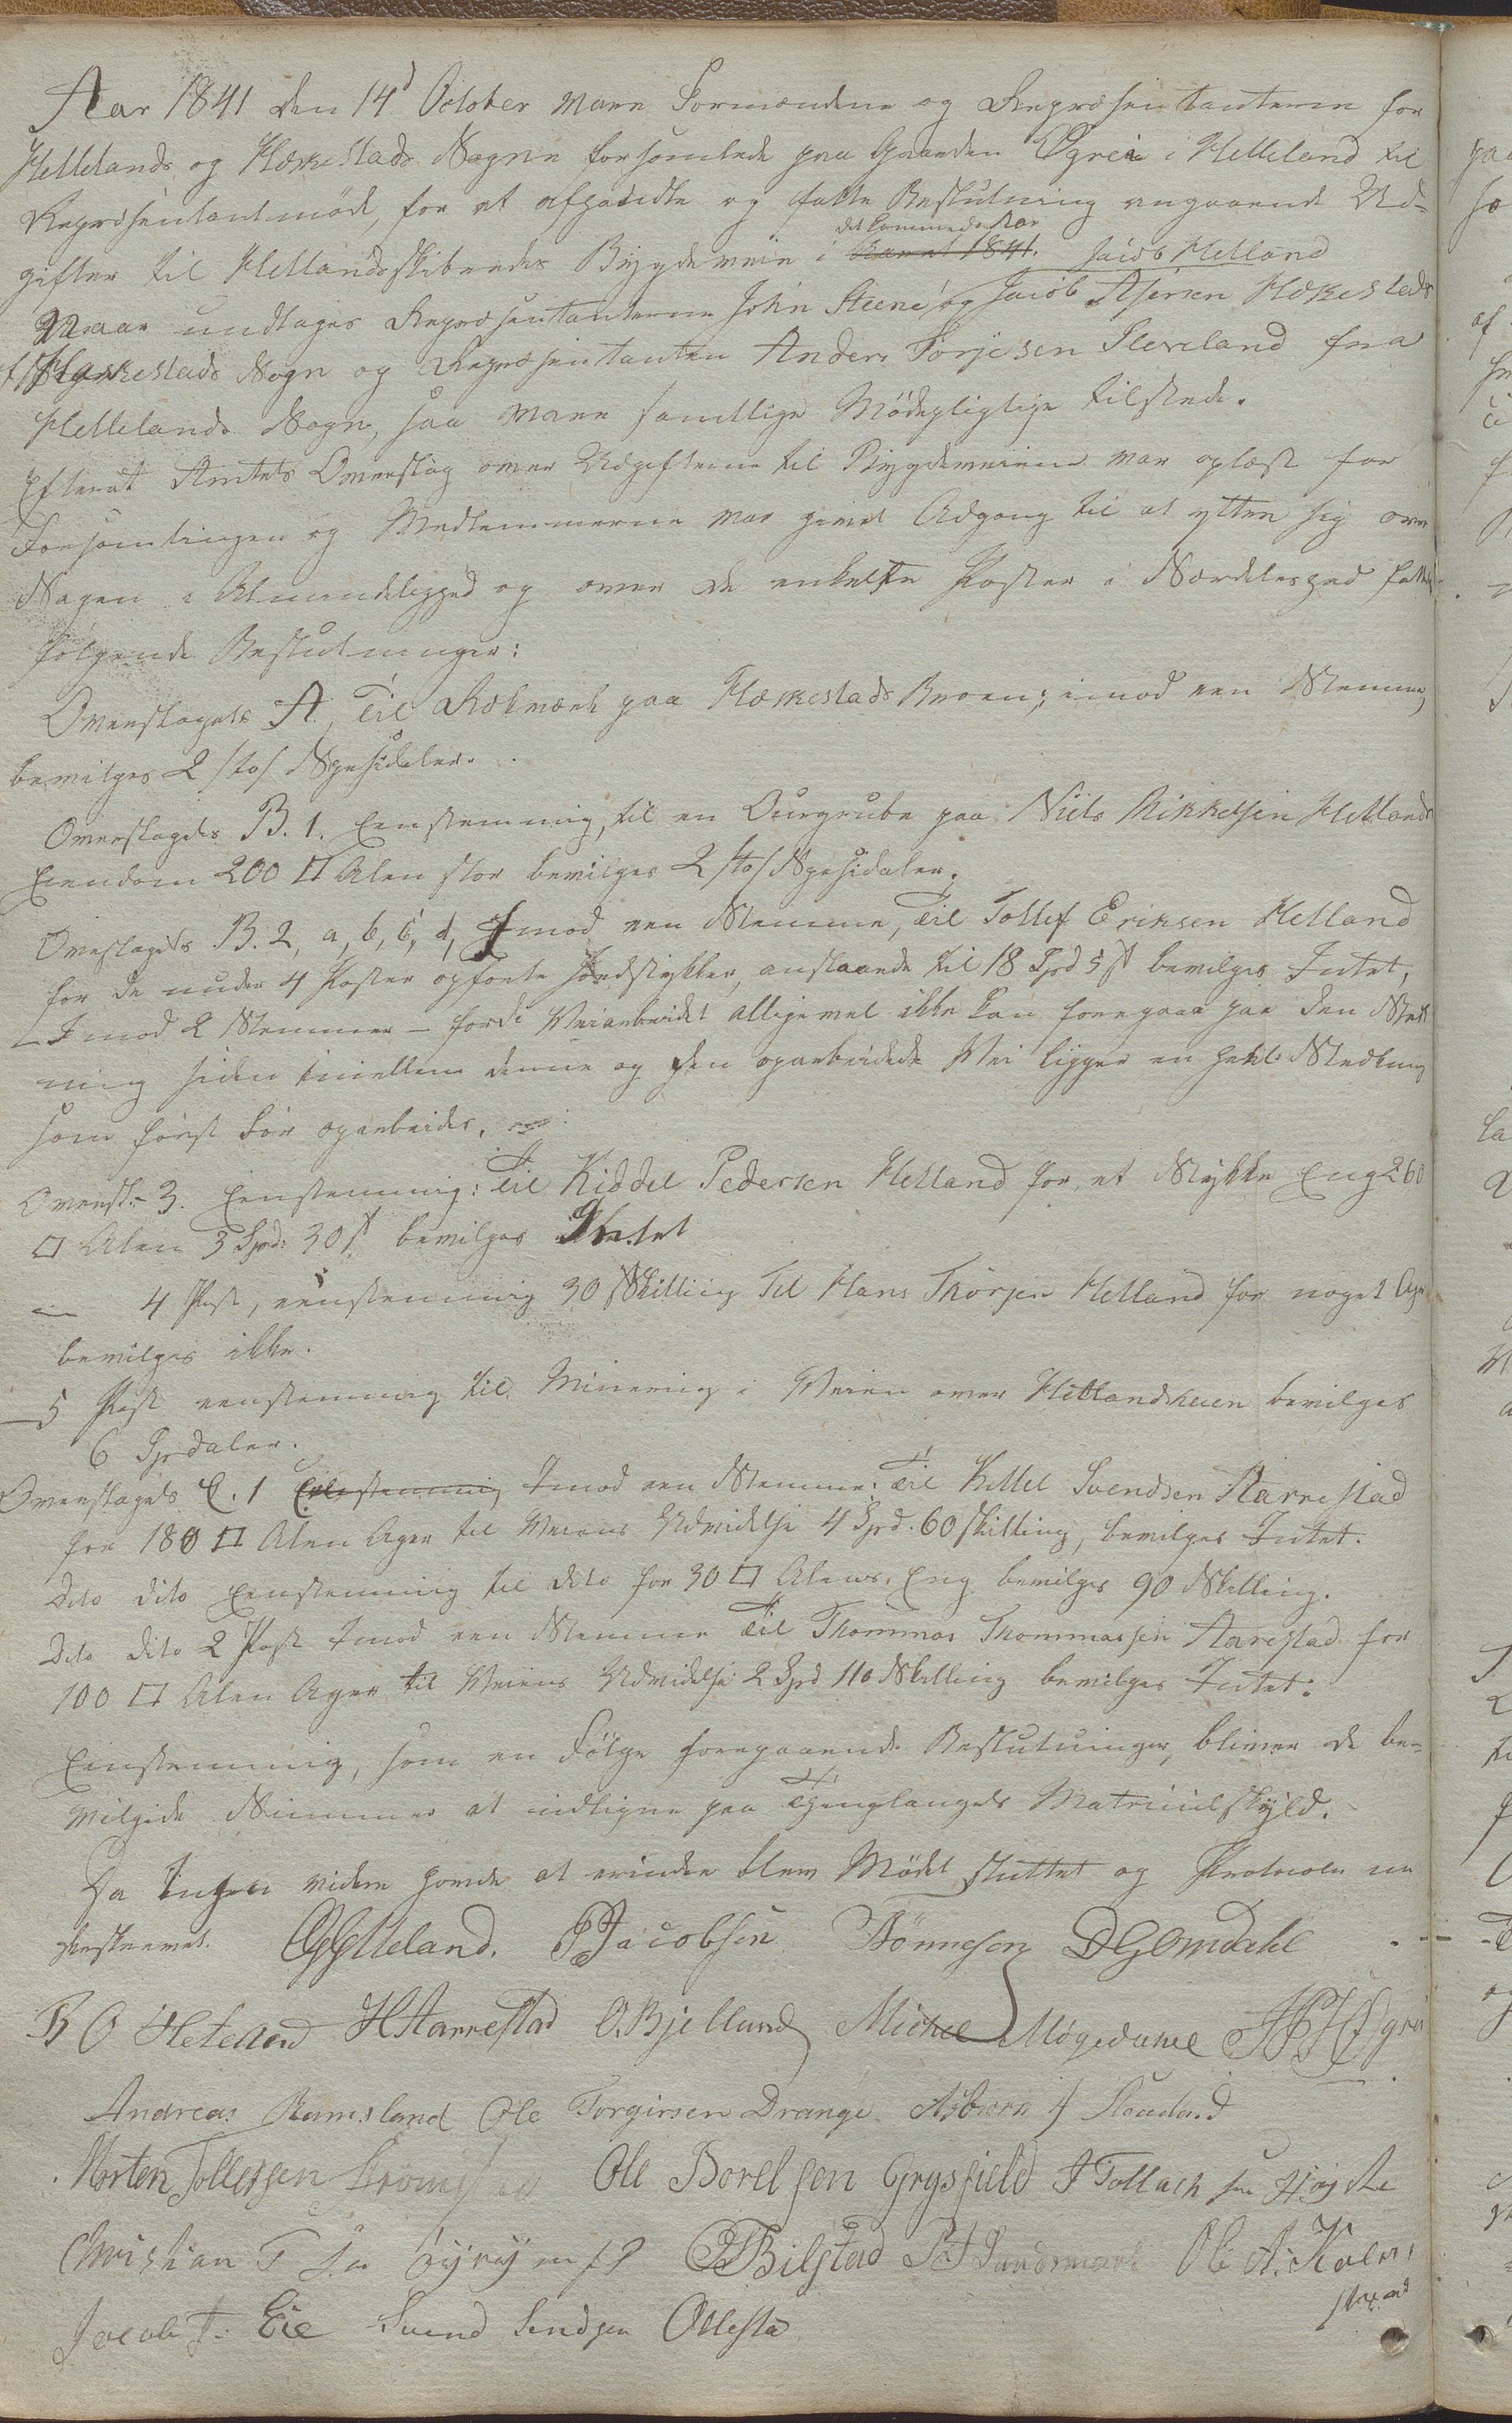 Aar 1841 den 14d October vare Formændene og Repræsentanterne for
Hellelands og Heskestads Sogne forsamlede paa Gaarden Øgrei i Helleland til
Repræsentantmöde, for at afhandle og fatte Beslutning angaaende Ud-
gifter til Hellandsskibredes Bygdeveie i det kommende Aar
Aaret 1841. Jacob Helland
Naar undtages Repræsentanterne John Steene og Jacob Assersen Heskestad
f Heskestads Sogn og Repræsentanten Anders Torjesen Sleveland fra
Hellelands Sogn, saa vare samtlige Mödepligtige tilstede.
Efterat Amtets Overslag over Udgifterne til Bygdeveiene var oplæst for
Forsamlingen og Medlemmerne var givet Adgang til at yttre sig over
Sagen i Almindelighed og over de enkelte Poster i Særdeleshed fattedes
følgende Beslutninger:
Overslagets A. Til Rækværk paa Heskestads Broen; imod een Stemme,
bevilges 2 /to/ Spesidaler.
Overslagets B. 1. Eenstemmig, til en Ourgrube paa Niels Mikkelsen Hellands
Eiendom 200 □ Alen stor bevilges 2 /to/ Spesidaler.
Overslagets B. 2, a, b, c, d, Imod een Stemme, Til Tollef Eriksen Helland
for de under 4 Poster opförte Jordstykker, anslaaede til 18 Spd 5 s bevilges Intet,
- Imod 2 Stemmer - fordi Veiarbeidet alligevel ikke kan foregaae paa den Stræk
ning siden imellem denne og den oparbeidede Vei ligger en heel Strækning
som først bör oparbeides.
Oversl: 3. Eenstemmig: Til Kiddel Pedersen Helland for et Stykke Eng 260
□ Alen 3 Spd: 30 s bevilges Intet
- 4 Post, eenstemmig 30 Skilling Til Hans Thorsen Helland for noget Ager
bevilges ikke.
- 5 Post eenstemmig til Minering i Veien over Hellandsheien bevilges
6 Spdaler.
Overslagets C. 1 Eenstemmig Imod een Stemme: Til Kittel Svendsen Aarrestad
for 180 □ Alen Ager til Veiens Udvidelse 4 Spd. 60 skilling, bevilges Intet.
Dito dito Eenstemmig til dito for 30 □ Alens Eng bevilges 90 Skilling.
Dito dito 2 Post Imod een Stemme Til Thommas Thommassen Aarestad for
100 □ Alen Ager til Veiens Udvidelse 2 Spd 110 Skilling bevilges Intet.
Eenstemmig, som en Fölge foregaaende Beslutninger, bliver de be-
vilgede Summer at udligne paa Thinglaugets Matriculskyld.
Da Ingen videre havde at erindre blev Mödet sluttet og Protocolen un
derskrevet. Helleland. PJacobsen Tönnesen DGOmdahl
B O Heteland HAarrestad O.Bjelland Michel Mögedahl
Andreas Ramsland Ole Torgirsen Drange Asbiørn
Morten Tollefsen Strömstad Ole Borelsen Grysfield
Christian T P Bilstad Ole A: Kolni
strand
Jacob J: Eie Svend Sendsen Ollestad